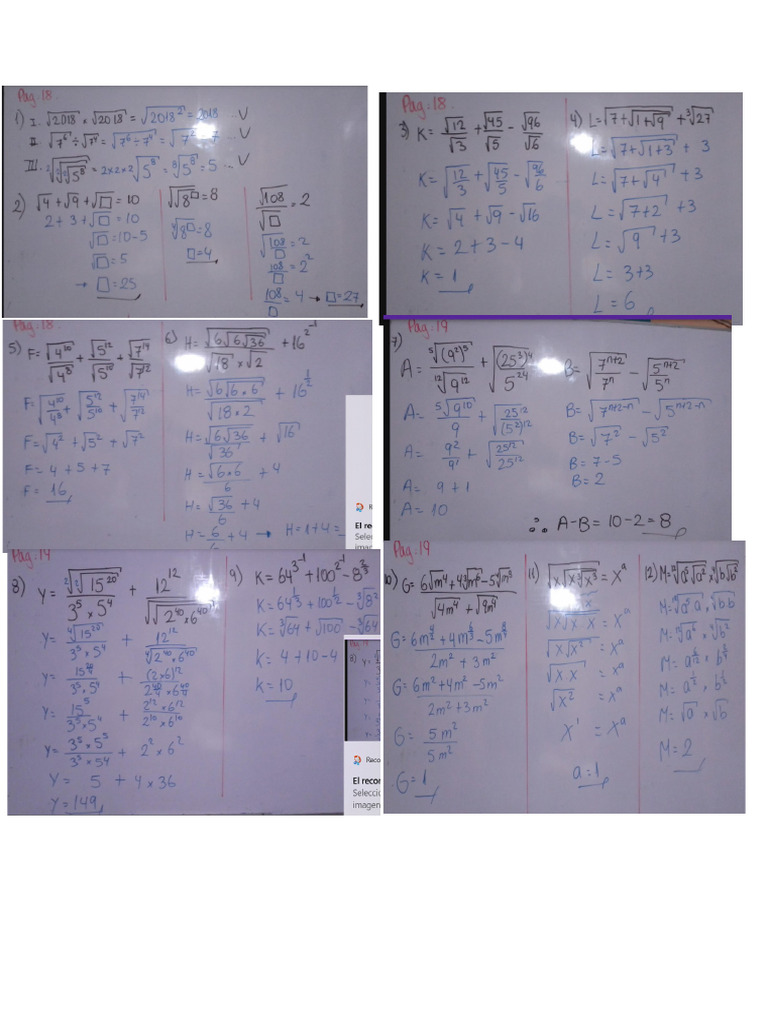 Pag: 18.
1) I. √2018 × √2018 = √2018² = 2018 ... V
II. √7⁶ ÷ √7⁴ = √7⁶÷7⁴ = √7² = 7 ... V
III. ²√²√²√5⁸ = ²ˣ²ˣ²√5⁸ = ⁸√5⁸ = 5 ... V
2) √4 + √9 + √□ = 10
2 + 3 + √□ = 10
√□ = 10-5
√□ = 5
→ □ = 25
√√8^□ = 8
⁴√8^□ = 8
□ = 4
√108/√□ = 2
√(108/□) = 2
108/□ = 2²
108/□ = 4 → □ = 27
Pág: 18.
3) K = √12/√3 + √45/√5 - √96/√6
K = √(12/3) + √(45/5) - √(96/6)
K = √4 + √9 - √16
K = 2 + 3 - 4
K = 1
4) L = √(7+√(1+√9)) + ³√27
L = √(7+√(1+3)) + 3
L = √(7+√4) + 3
L = √(7+2) + 3
L = √9 + 3
L = 3+3
L = 6
Pág: 18
5) F = √4¹⁰/√4⁸ + √5¹²/√5¹⁰ + √7¹⁴/√7¹²
F = √(4¹⁰/4⁸) + √(5¹²/5¹⁰) + √(7¹⁴/7¹²)
F = √4² + √5² + √7²
F = 4 + 5 + 7
F = 16
6) H = √(6√(6√36))/(√18 × √2) + 16^(2⁻¹)
H = √(6√(6×6))/√(18×2) + 16^(1/2)
H = √(6√36)/√36 + √16
H = √(6×6)/6 + 4
H = √36/6 + 4
H = 6/6 + 4 → H = 1+4 =
Pág: 19
7) A = ⁵√(9²)⁵/¹²√9¹² + √((25³)⁴/5²⁴)
A = ⁵√9¹⁰/9 + √(25¹²/(5²)¹²)
A = 9²/9¹ + √(25¹²/25¹²)
A = 9 + 1
A = 10
B = √(7ⁿ⁺²/7ⁿ) - √(5ⁿ⁺²/5ⁿ)
B = √7ⁿ⁺²⁻ⁿ - √5ⁿ⁺²⁻ⁿ
B = √7² - √5²
B = 7-5
B = 2
∴ A-B = 10-2 = 8
Pag: 19
8) Y = ²√²√15²⁰/(3⁵×5⁴) + 12¹²/√√(2⁴⁰×6⁴⁰)
Y = ⁴√15²⁰/(3⁵×5⁴) + 12¹²/⁴√(2⁴⁰×6⁴⁰)
Y = 15^(20/4)/(3⁵×5⁴) + (2×6)¹²/(2^(40/4)×6^(40/4))
Y = 15⁵/(3⁵×5⁴) + (2¹²×6¹²)/(2¹⁰×6¹⁰)
Y = (3⁵×5⁵)/(3⁵×5⁴) + 2²×6²
Y = 5 + 4×36
Y = 149
9) K = 64^(3⁻¹) + 100^(2⁻¹) - 8^(2/3)
K = 64^(1/3) + 100^(1/2) - ³√8²
K = ³√64 + √100 - ³√64
K = 4 + 10 - 4
K = 10
El recor
Selecci
imagen
Pag: 19
11) √(x√(x³√x³)) = xᵃ
√(x√(x x)) = xᵃ
√(x√x²) = xᵃ
√(x.x) = xᵃ
√x² = xᵃ
x¹ = xᵃ
a = 1
G = (6m² + 4m² - 5m²)/(2m² + 3m²)
G = 5m²/5m²
G = 1
M = √a × √b
M = 2